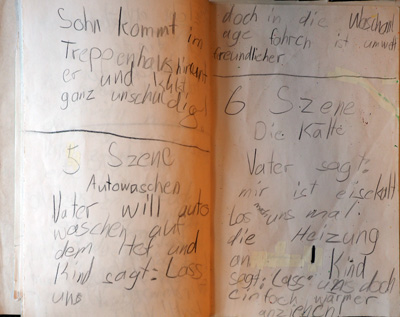 Sohn kommt im
Treppenhaus hinunt
er und
ganz unschuldig
5 Szene
Autowaschen
Vater will auto
waschen auf
dem Hof und
Kind sagt: Lass
uns
doch in die Waschanl
age fahren ist umwelt
freundlicher.
6 Szene
Die Kälte
Vater sagt:
mir ist eisekalt
Las uns mal
die Heizung
an Kind
sagt: Lass uns doch
einfach wärmer
anziehen!